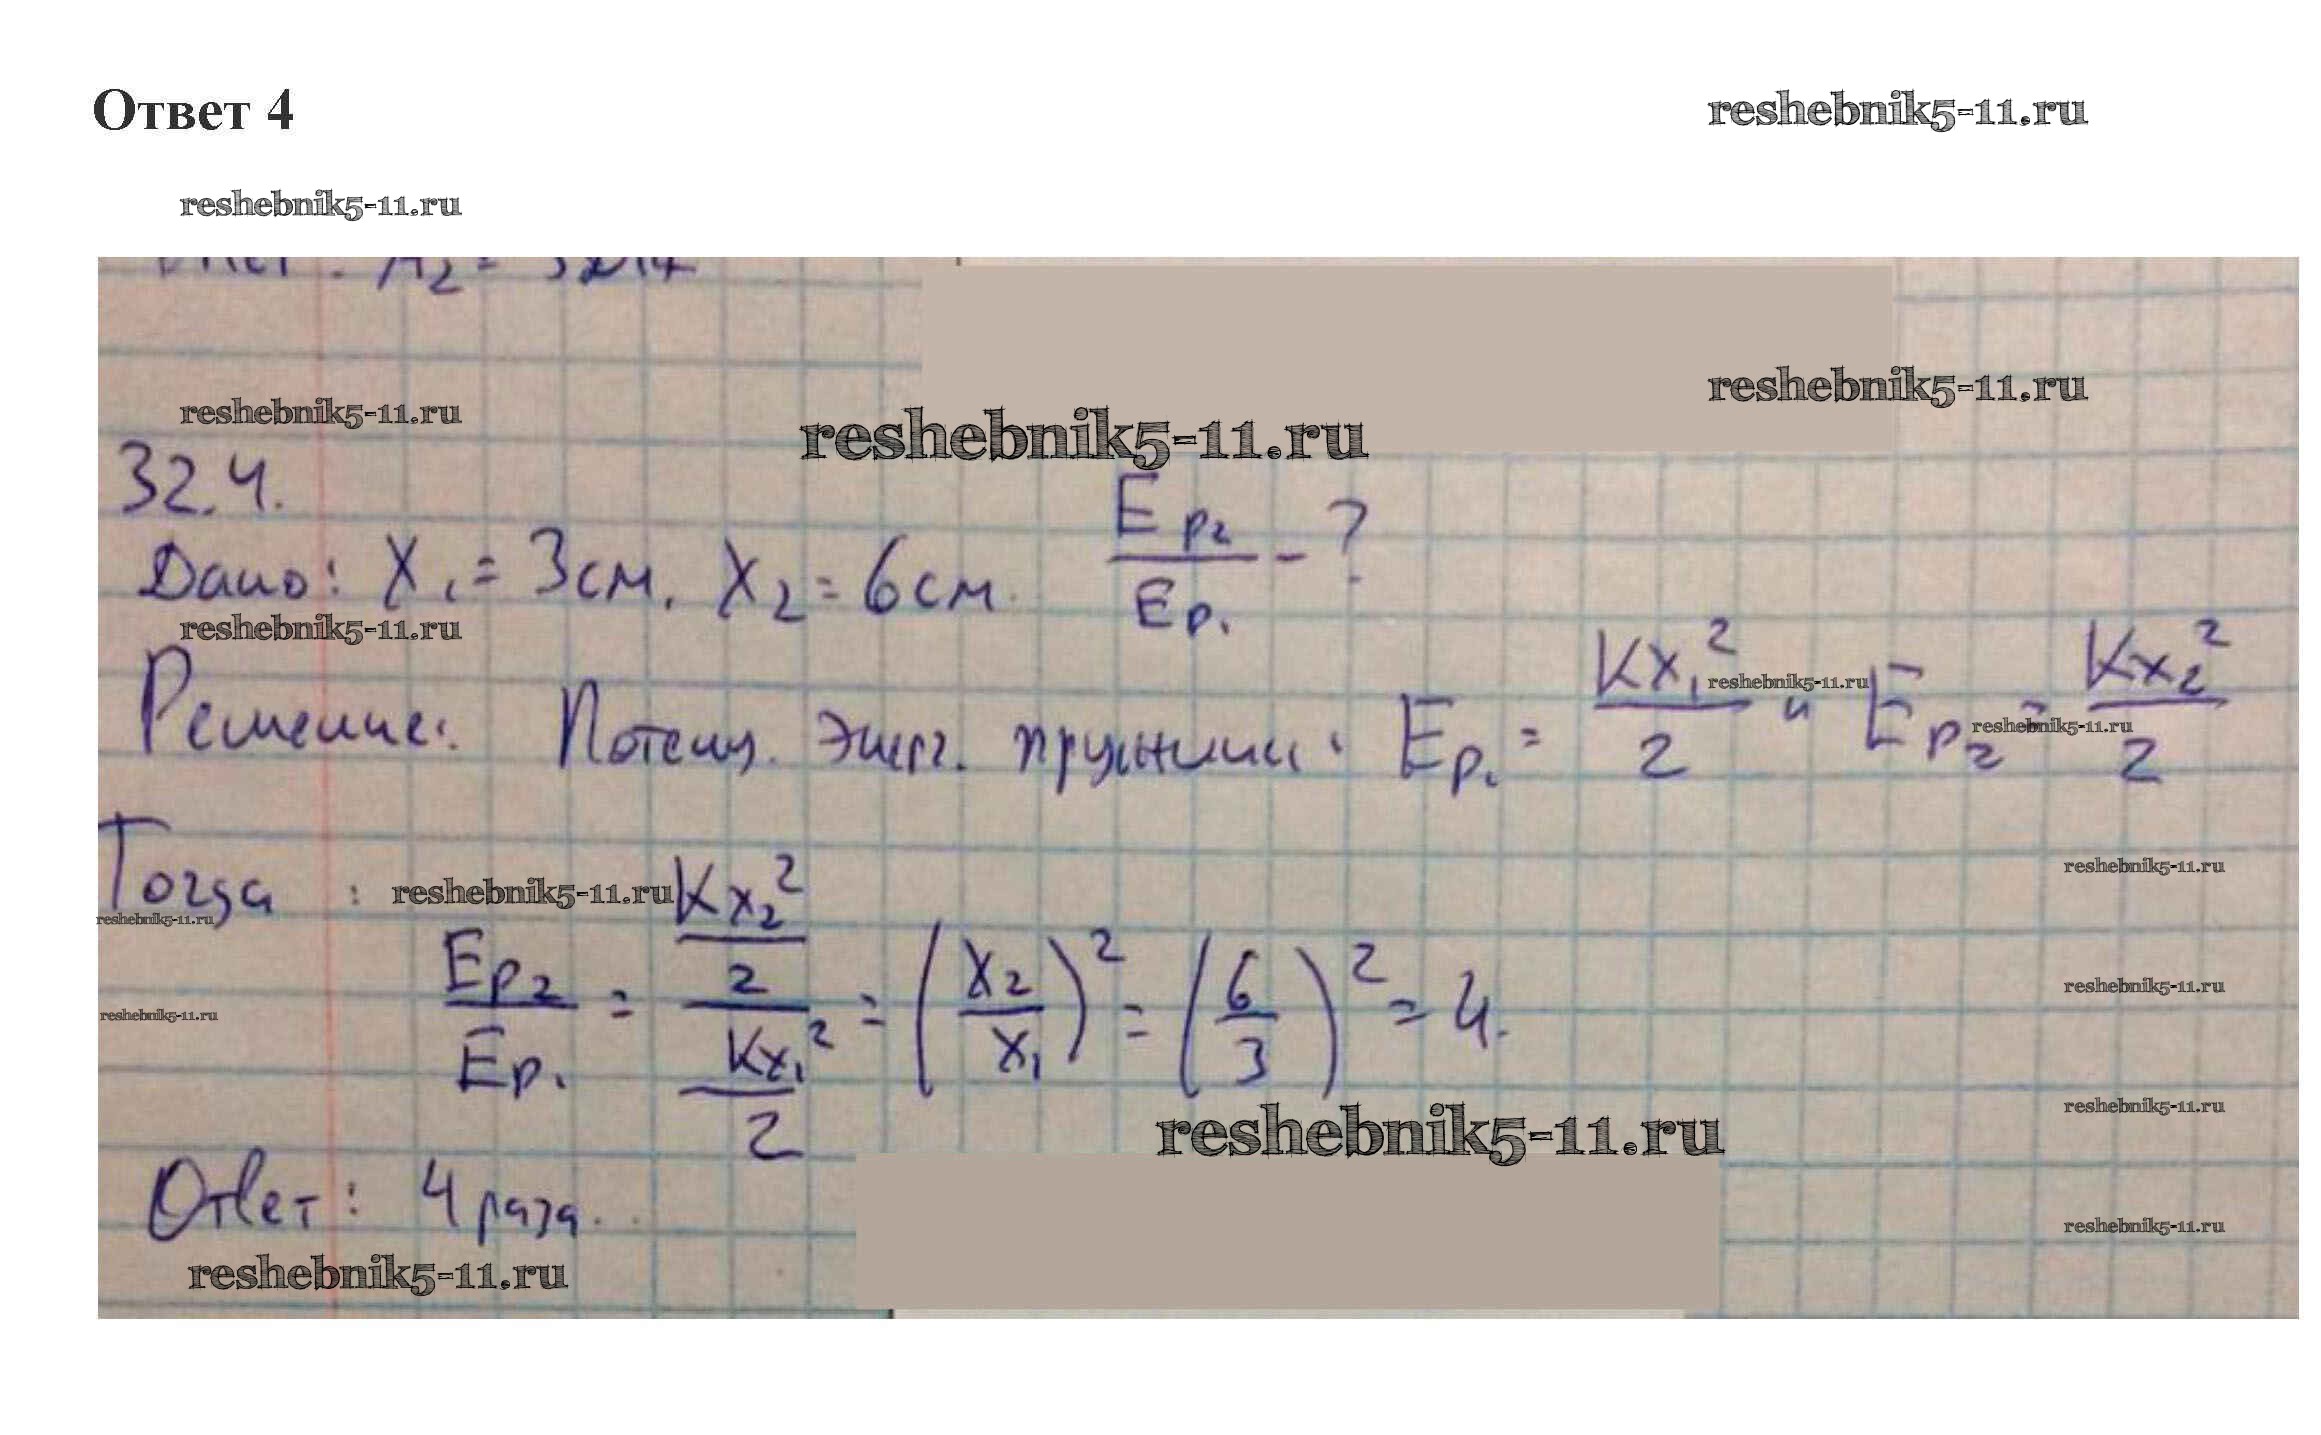 Ответ 4
reshebnik5-11.ru
reshebnik5-11.ru
reshebnik5-11.ru
reshebnik5-11.ru
reshebnik5-11.ru
32.4.
Дано: x₁ = 3см. x₂ = 6см. Eр₂/Eр₁ - ?
reshebnik5-11.ru
Решение: Потенц. энерг. пружины: Eр₁ = Kx₁²/2 и Eр₂ = Kx₂²/2
reshebnik5-11.ru
reshebnik5-11.ru
Тогда :
reshebnik5-11.ru
reshebnik5-11.ru
reshebnik5-11.ru
Eр₂/Eр₁ = (Kx₂²/2)/(Kx₁²/2) = (x₂/x₁)² = (6/3)² = 4.
reshebnik5-11.ru
reshebnik5-11.ru
reshebnik5-11.ru
reshebnik5-11.ru
Ответ: 4 раза.
reshebnik5-11.ru
reshebnik5-11.ru